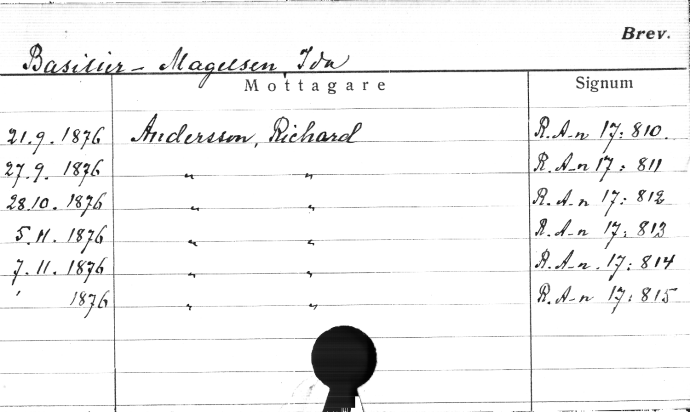 Brev.
Basilier - Magelsen, Ida
Mottagare Signum
21.9.1876 Andersson, Richard R.A-n 17:810.
27.9.1876 " " R.A-n 17:811
28.10.1876 " " R.A-n 17:812
5.11.1876 " " R.A-n 17:813
7.11.1876 " " R.A-n.17:814
' 1876 " " R.A-n 17:815